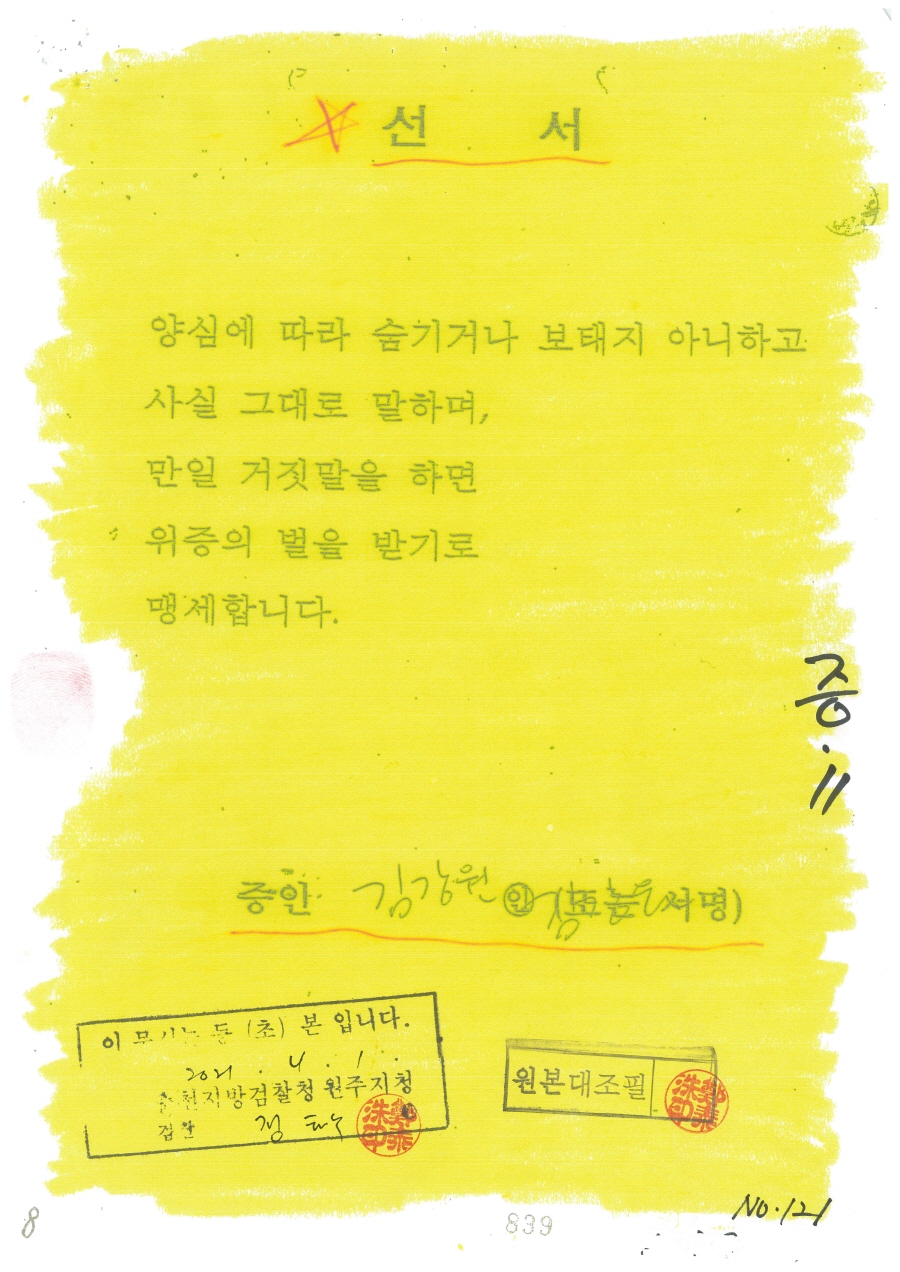 선 서
양심에 따라 숨기거나 보태지 아니하고
사실 그대로 말하며,
만일 거짓말을 하면
위증의 벌을 받기로
맹세합니다.
증.11
증인 김강원 인 (또는 서명)
이 등 (초) 본 입니다.
2021 . 4 . 1 .
춘천지방검찰청 원주지청
원본대조필
NO.121
8
839